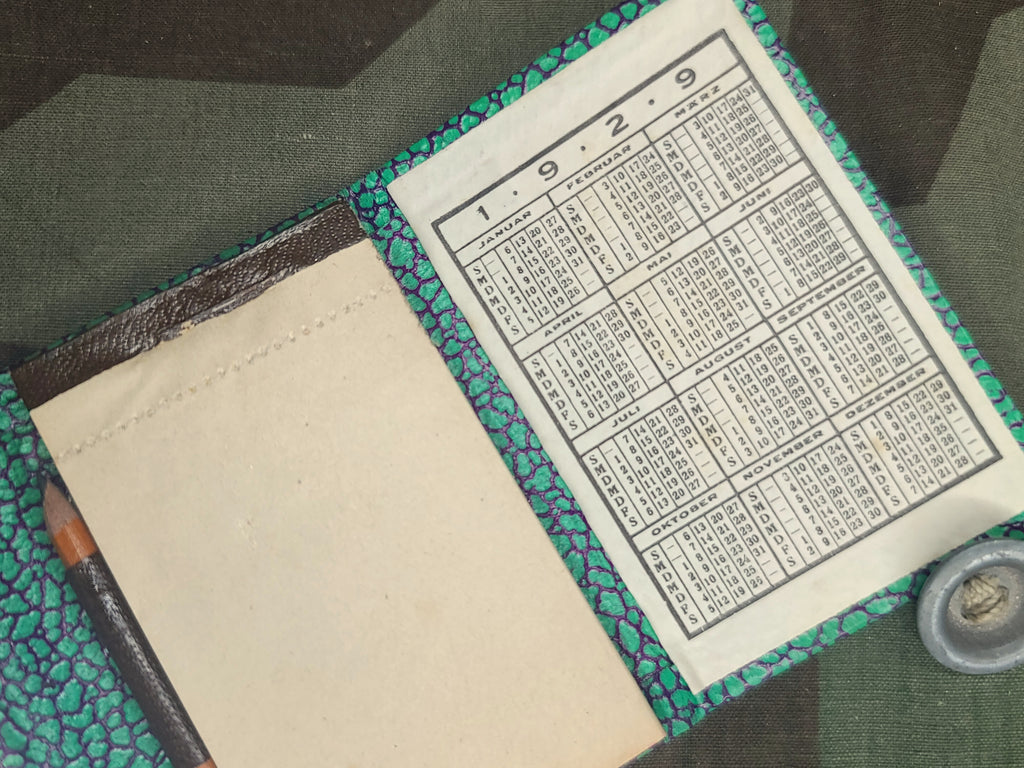 1.9.2.9
JANUAR
S — 6 13 20 27
M — 7 14 21 28
D 1 8 15 22 29
M 2 9 16 23 30
D 3 10 17 24 31
F 4 11 18 25 —
S 5 12 19 26 —
FEBRUAR
S — 3 10 17 24
M — 4 11 18 25
D — 5 12 19 26
M — 6 13 20 27
D — 7 14 21 28
F 1 8 15 22 —
S 2 9 16 23 —
MÄRZ
S — 3 10 17 24 31
M — 4 11 18 25 —
D — 5 12 19 26 —
M — 6 13 20 27 —
D — 7 14 21 28 —
F 1 8 15 22 29 —
S 2 9 16 23 30 —
APRIL
S — 7 14 21 28
M 1 8 15 22 29
D 2 9 16 23 30
M 3 10 17 24 —
D 4 11 18 25 —
F 5 12 19 26 —
S 6 13 20 27 —
MAI
S — 5 12 19 26
M — 6 13 20 27
D — 7 14 21 28
M 1 8 15 22 29
D 2 9 16 23 30
F 3 10 17 24 31
S 4 11 18 25 —
JUNI
S — 2 9 16 23 30
M — 3 10 17 24 —
D — 4 11 18 25 —
M — 5 12 19 26 —
D — 6 13 20 27 —
F — 7 14 21 28 —
S 1 8 15 22 29 —
JULI
S — 7 14 21 28
M 1 8 15 22 29
D 2 9 16 23 30
M 3 10 17 24 31
D 4 11 18 25 —
F 5 12 19 26 —
S 6 13 20 27 —
AUGUST
S — 4 11 18 25
M — 5 12 19 26
D — 6 13 20 27
M — 7 14 21 28
D 1 8 15 22 29
F 2 9 16 23 30
S 3 10 17 24 31
SEPTEMBER
S 1 8 15 22 29
M 2 9 16 23 30
D 3 10 17 24 —
M 4 11 18 25 —
D 5 12 19 26 —
F 6 13 20 27 —
S 7 14 21 28 —
OKTOBER
S — 6 13 20 27
M — 7 14 21 28
D 1 8 15 22 29
M 2 9 16 23 30
D 3 10 17 24 31
F 4 11 18 25 —
S 5 12 19 26 —
NOVEMBER
S — 3 10 17 24
M — 4 11 18 25
D — 5 12 19 26
M — 6 13 20 27
D — 7 14 21 28
F 1 8 15 22 29
S 2 9 16 23 30
DEZEMBER
S 1 8 15 22 29
M 2 9 16 23 30
D 3 10 17 24 31
M 4 11 18 25 —
D 5 12 19 26 —
F 6 13 20 27 —
S 7 14 21 28 —